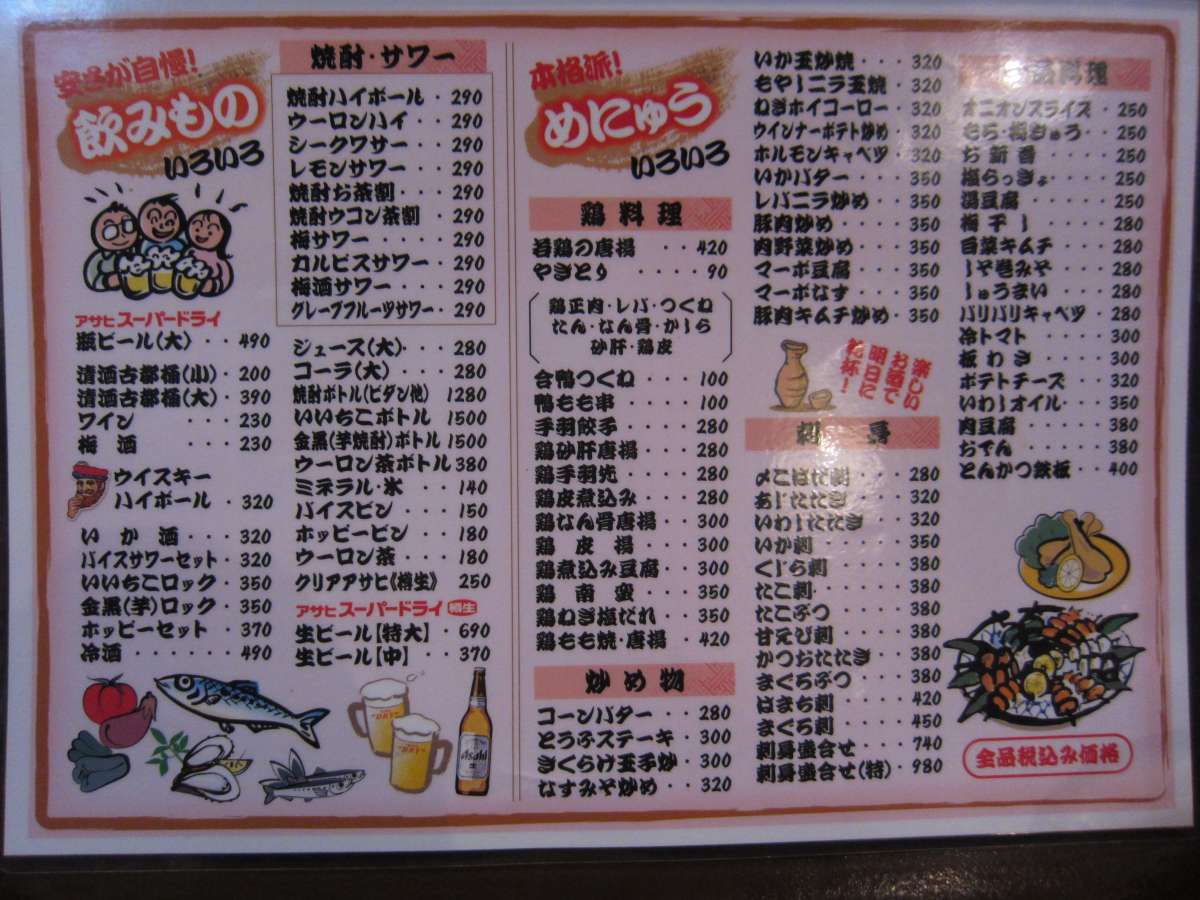 安さが自慢!
飲みもの
いろいろ
アサヒスーパードライ
瓶ビール(大)・・490
清酒古都桶(小)・200
清酒古都桶(大)・390
ワイン ・・・230
梅酒 ・・・230
ウイスキー
ハイボール・320
いか酒・・・320
バイスサワーセット・320
いいちこロック・350
金黒(芋)ロック・350
ホッピーセット・370
冷酒・・・・・490
焼酎・サワー
焼酎ハイボール・290
ウーロンハイ・・290
シークワサー・・290
レモンサワー・・290
焼酎お茶割・・・290
焼酎ウコン茶割・290
梅サワー・・・・290
カルピスサワー・290
梅酒サワー・・・290
グレープフルーツサワー・290
ジュース(大)・・280
コーラ(大)・・・280
焼酎ボトル(ビタン他)1280
いいちこボトル1500
金黒(芋焼酎)ボトル1500
ウーロン茶ボトル380
ミネラル・氷・・140
バイスビン・・・150
ホッピービン・・180
ウーロン茶・・・180
クリアアサヒ《樽生》250
アサヒスーパードライ 樽生
生ビール【特大】・690
生ビール【中】・・370
Asahi
本格派!
めにゅう
いろいろ
鶏料理
若鶏の唐揚・・420
やきとり・・・・90
鶏正肉・レバ・つくね
たん・なん骨・かしら
砂肝・鶏皮
合鴨つくね・・・100
鴨もも串・・・・100
手羽餃子・・・・280
鶏砂肝唐揚・・・280
鶏手羽先・・・・280
鶏皮煮込み・・・280
鶏なん骨唐揚・・300
鶏皮揚・・・・300
鶏煮込み豆腐・・300
鶏南蛮・・・・350
鶏ねぎ塩だれ・・350
鶏もも焼・唐揚・420
炒め物
コーンバター・・280
とうふステーキ・300
きくらげ玉子炒・300
なすみそ炒め・・320
いか玉炒焼・・・320
もやしニラ玉焼・320
ねぎホイコーロー・320
ウインナーポテト炒め・320
ホルモンキャベツ・320
いかバター・・・350
レバニラ炒め・・350
豚肉炒め・・・・350
肉野菜炒め・・・350
マーボ豆腐・・・350
マーボなす・・・350
豚肉キムチ炒め・350
楽しい
お酒で
明日に
乾杯!
刺身
〆こはだ刺・・・280
あじたたき・・・320
いわしたたき・・320
いか刺・・・・・350
くじら刺・・・・380
たこ刺・・・・・380
たこぶつ・・・・380
甘えび刺・・・・380
かつおたたき・・380
まぐろぶつ・・・380
はまち刺・・・・420
まぐろ刺・・・・450
刺身盛合せ・・・740
刺身盛合せ(特)・980
料理
オニオンスライス・250
もろ・梅きゅう・・250
お新香・・・・・250
塩らっきょ・・・250
湯豆腐・・・・・250
梅干し・・・・・280
白菜キムチ・・・280
しそ巻みそ・・・280
しゅうまい・・・280
パリパリキャベツ・280
冷トマト・・・・300
板わさ・・・・・300
ポテトチーズ・・320
いわしオイル・・350
肉豆腐・・・・・380
おでん・・・・・380
とんかつ鉄板・・400
全品税込み価格